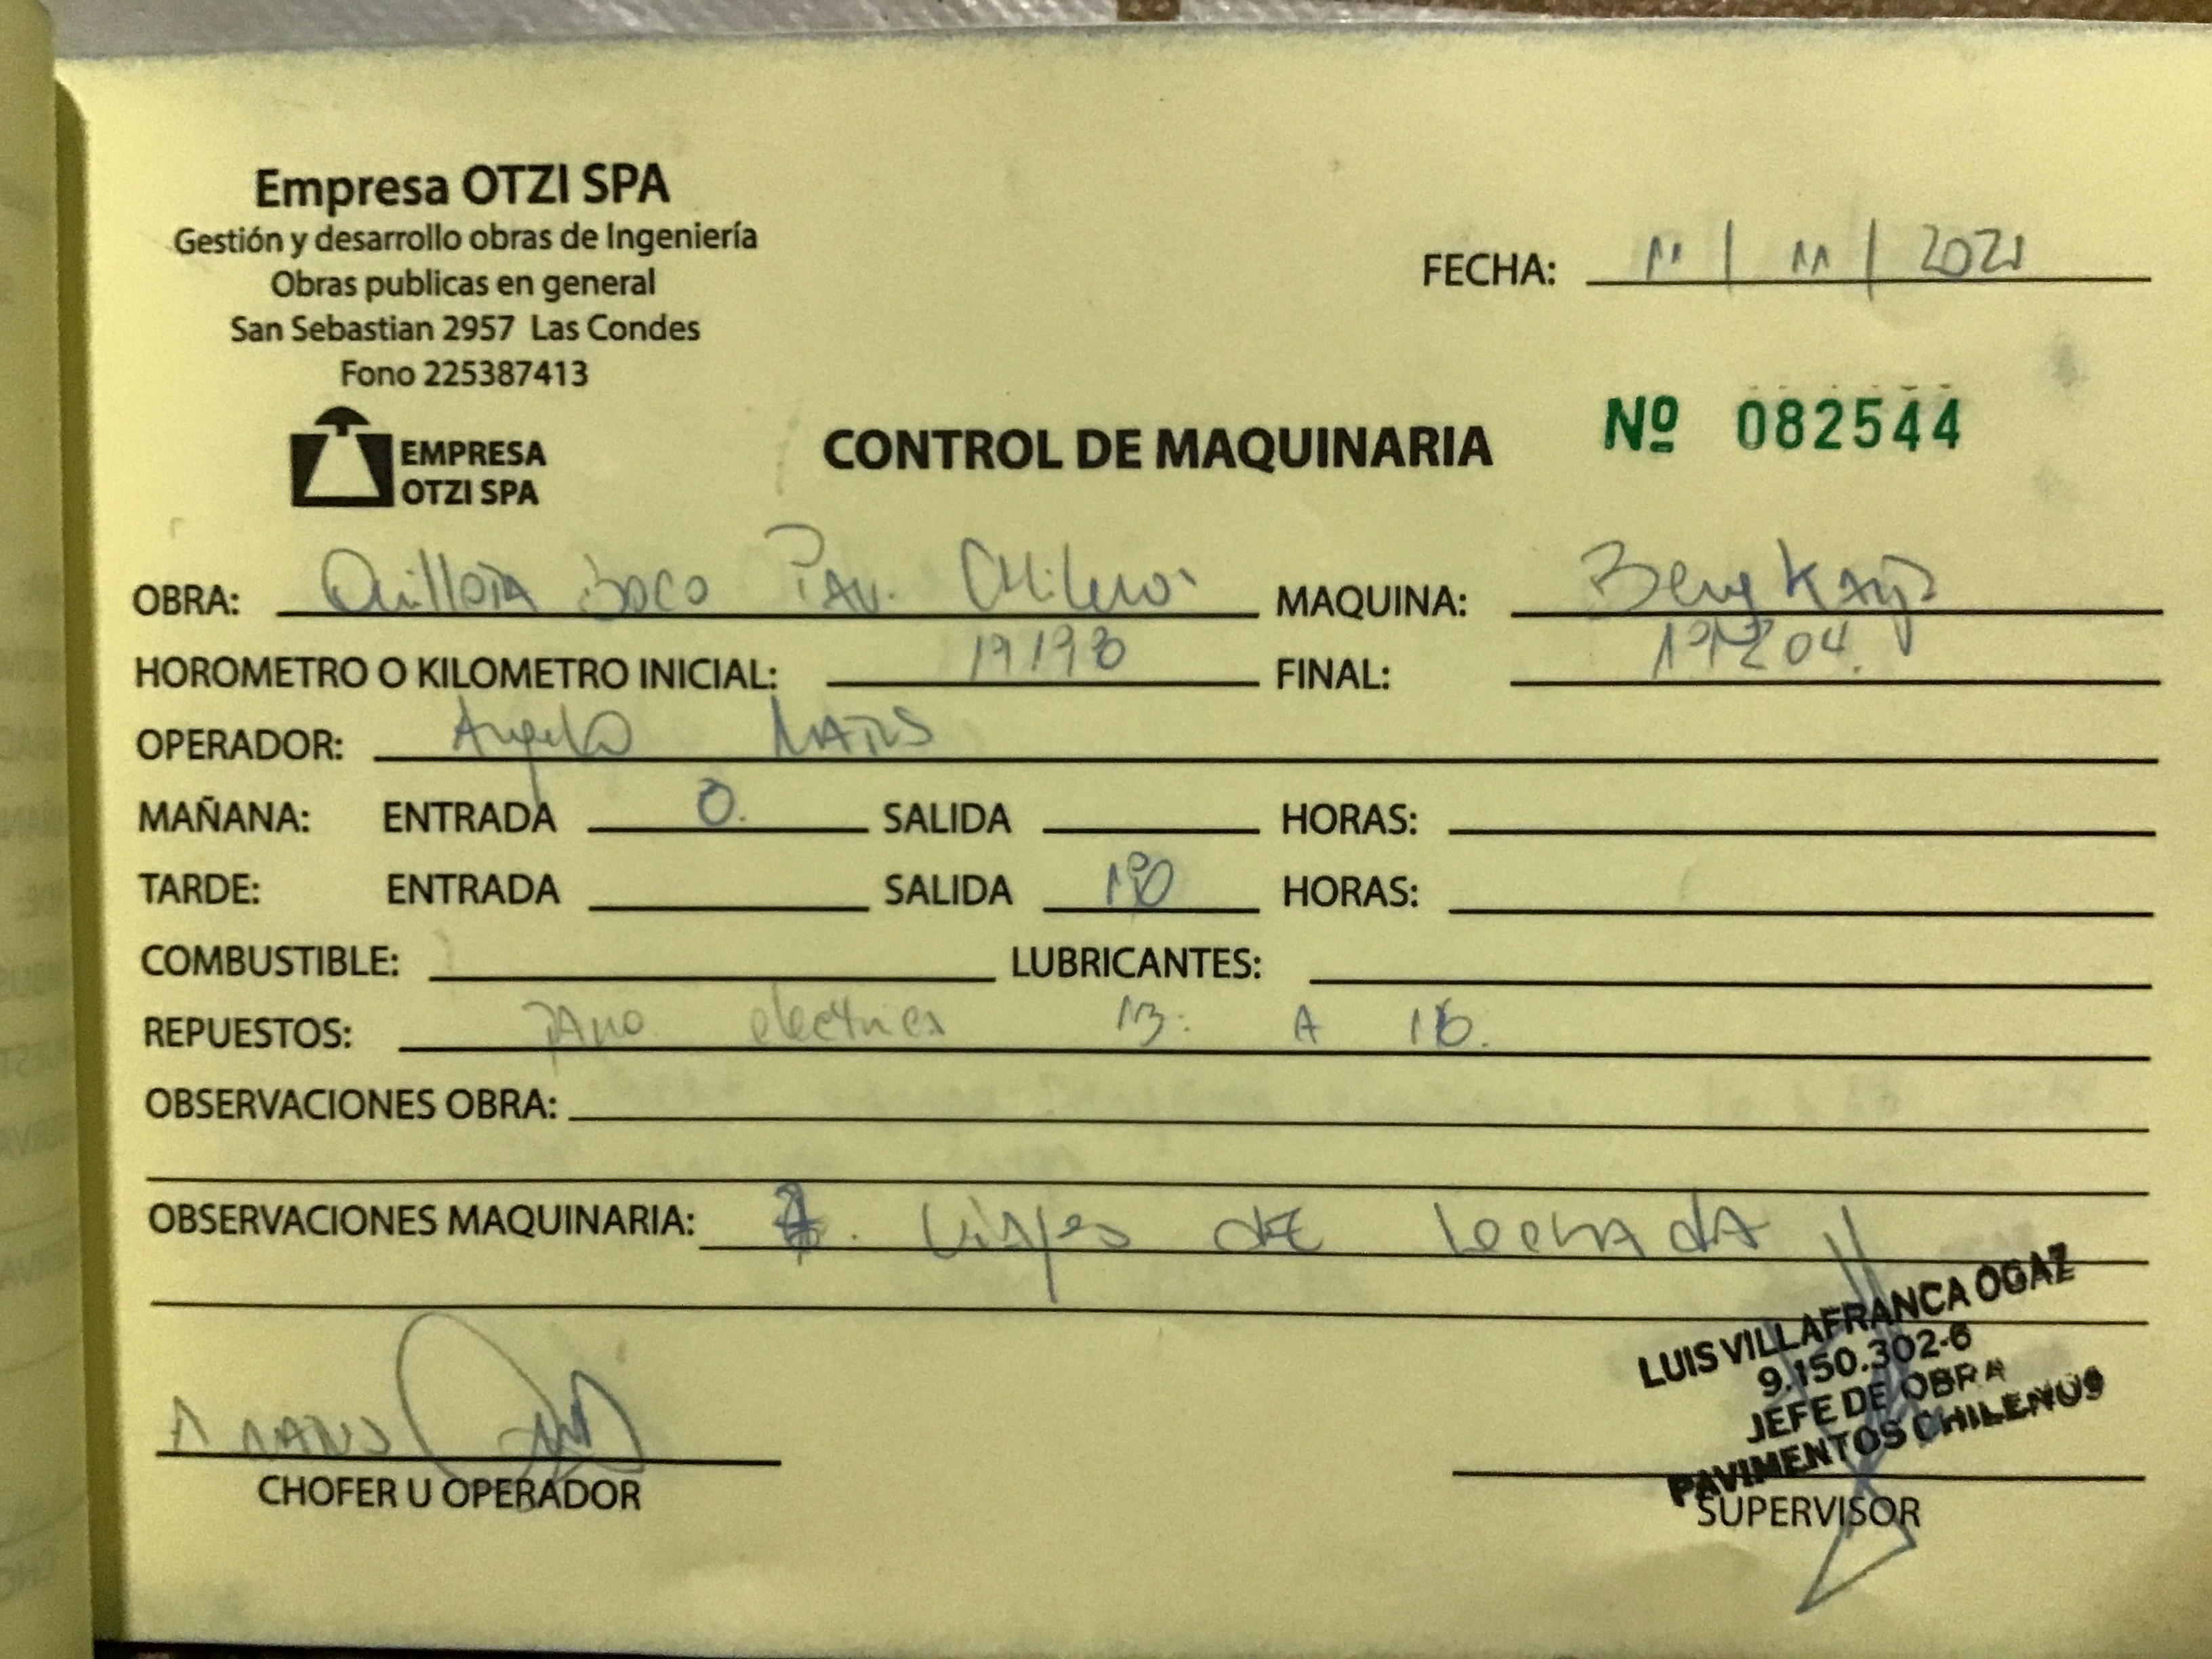 Empresa OTZI SPA
Gestión y desarrollo obras de Ingeniería
Obras publicas en general
San Sebastian 2957 Las Condes
Fono 225387413
FECHA: 11 / 11 / 2021
EMPRESA
OTZI SPA
CONTROL DE MAQUINARIA Nº 082544
OBRA: Quillota Boco Pav. Chilenos MAQUINA:
HOROMETRO O KILOMETRO INICIAL: FINAL:
OPERADOR:
MAÑANA: ENTRADA 8. SALIDA HORAS:
TARDE: ENTRADA SALIDA 18 HORAS:
COMBUSTIBLE: LUBRICANTES:
REPUESTOS: electrica 13: A 16.
OBSERVACIONES OBRA:
OBSERVACIONES MAQUINARIA: . Viajes de
CHOFER U OPERADOR
SUPERVISOR
LUIS VILLAFRANCA OGAZ
9.150.302-6
JEFE DE OBRA
PAVIMENTOS CHILENOS